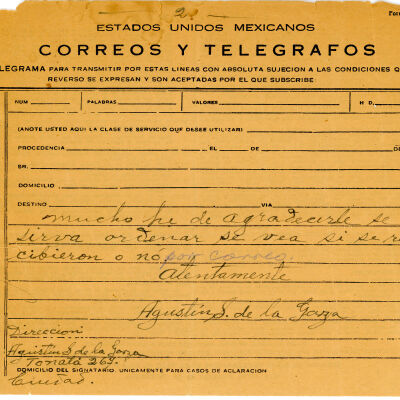 - 2 -
For
ESTADOS UNIDOS MEXICANOS
CORREOS Y TELEGRAFOS
LEGRAMA PARA TRANSMITIR POR ESTAS LINEAS CON ABSOLUTA SUJECION A LAS CONDICIONES Q
REVERSO SE EXPRESAN Y SON ACEPTADAS POR EL QUE SUBSCRIBE:
NUM PALABRAS VALORES H D.
(ANOTE USTED AQUI LA CLASE DE SERVICIO QUE DESEE UTILIZAR)
PROCEDENCIA EL DE DE
SR.
DOMICILIO
DESTINO VIA
mucho he de agradecerle se
sirva ordenar se vea si se r
cibieron o no por correo.
Atentamente
Agustín S. de la Garza
Direccion
Agustin S. de la Garza
Tonalá 269.
DOMICILIO DEL SIGNATARIO, UNICAMENTE PARA CASOS DE ACLARACION
Ciudad.